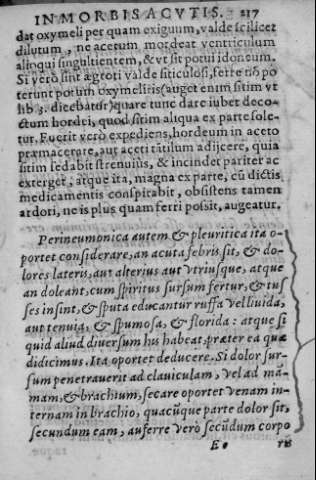 IN MORBIS ACVTIS. 217
dat oxymeli per quam exiguum, valde scilicet
dilutum, ne acetum mordeat ventriculum
alioqui singultientem, & vt sit potui idoneum.
Si verò sint ægroti valde siticulosi, ferre nō po
terunt potum oxymelitis (auget enim sitim vt
lib. 3. dicebatur) quare tunc dare iubet deco-
ctum hordei, quod sitim aliqua ex parte sole-
tur. Fuerit verò expediens, hordeum in aceto
præmacerare, aut aceti tātillum adijcere, quia
sitim sedabit strenuiùs, & incindet pariter ac
exterget, atque ita, magna ex parte, cū dictis
medicamentis conspirabit, obsistens tamen
ardori, ne is plus quam ferri possit, augeatur.
Perineumonica autem & pleuritica ita o-
portet considerare, an acuta febris sit, & do-
lores lateris, aut alterius aut vtriusque, atque
an doleant, cum spiritus sursum fertur, & tus
ses insint, & sputa educantur ruffa vel liuida,
aut tenuia, & spumosa, & florida: atque si
quid aliud diuersum his habeat, præter ea quæ
didicimus. Ita oportet deducere. Si dolor sur-
sum penetrauerit ad clauiculam, vel ad mā-
mam, & brachium, secare oportet venam in-
ternam in brachio, quacūque parte dolor sit,
secundum eam, auferre verò secūdum corpo
E e ris